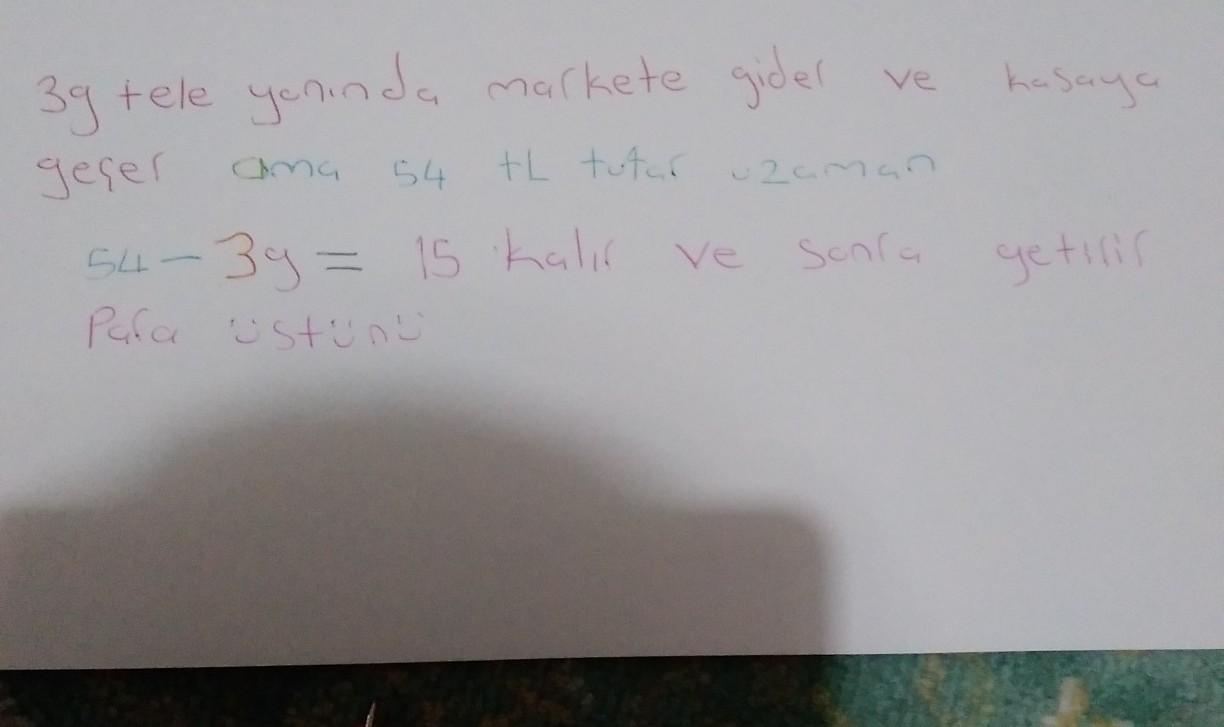 39 tele yanında markete gider ve kasaya
geçer ama 54 tL tutar uzaman
54 - 39 = 15 kalır ve sonra getirir
Para üstünü